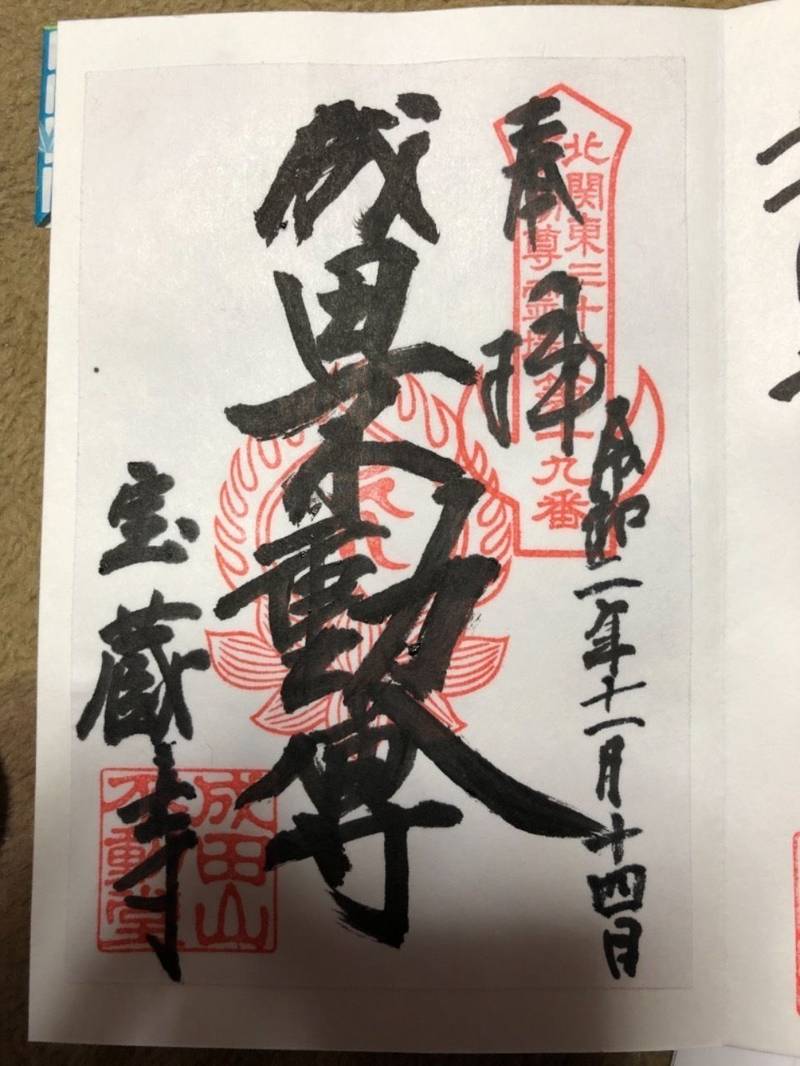 奉拝
令和二年十一月十四日
北関東三十六
不動尊霊場第十九番
成田不動尊
宝蔵寺
成田山
不動堂